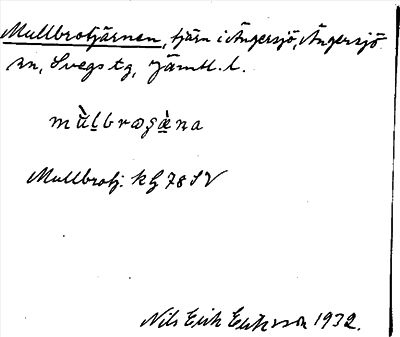 Mullbrotjärnen, tjärn i Ängersjö, Ängersjö
sn, Svegs tg, Jämtl. l.
mùlbroʂæ̀na
Mullbrotj. kG 78 SV
Nils Erik Eriksson 1932.